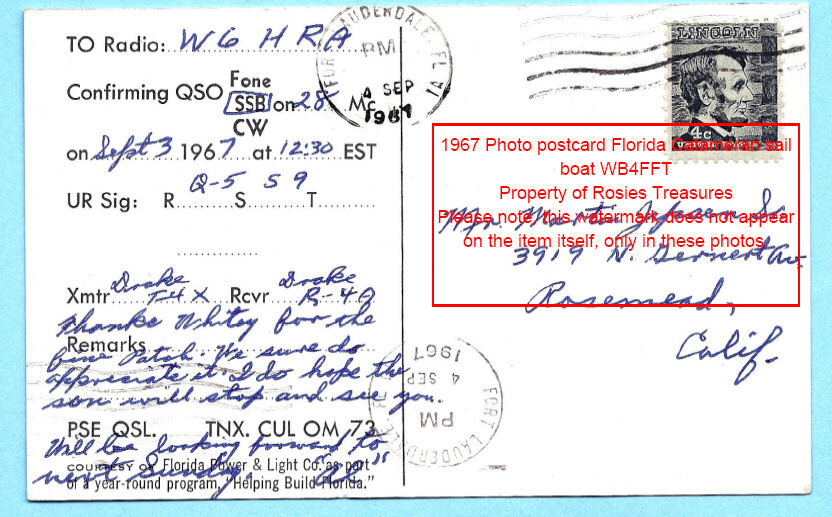 TO Radio: W6 HRA
Fone
Confirming QSO SSB on 28 Mc
CW
on Sept 3 1967 at 12:30 EST
Q-5 S 9
UR Sig: R S T
Drake Drake
Xmtr T-4X Rcvr R-4A
Thanks Whitey for the
Remarks
fine Patch. We sure do
appreciate it. I do hope the
son will stop and see you.
PSE QSL. TNX. CUL OM 73
Will be looking forward to
next Sunday. "Al"
COURTESY OF Florida Power & Light Co. as part
of a year-round program, "Helping Build Florida."
FORT LAUDERDALE, FL
PM
4 SEP
1967
LINCOLN
4c
1967 Photo postcard Florida Catamaran sail
boat WB4FFT
Property of Rosies Treasures
Please note, this watermark does not appear
on the item itself, only in these photos
Mr. Martin Sr.
3919 N. Gernert Av.
Rosemead,
Calif.
FORT LAUDERDALE, FL
PM
4 SEP
1967